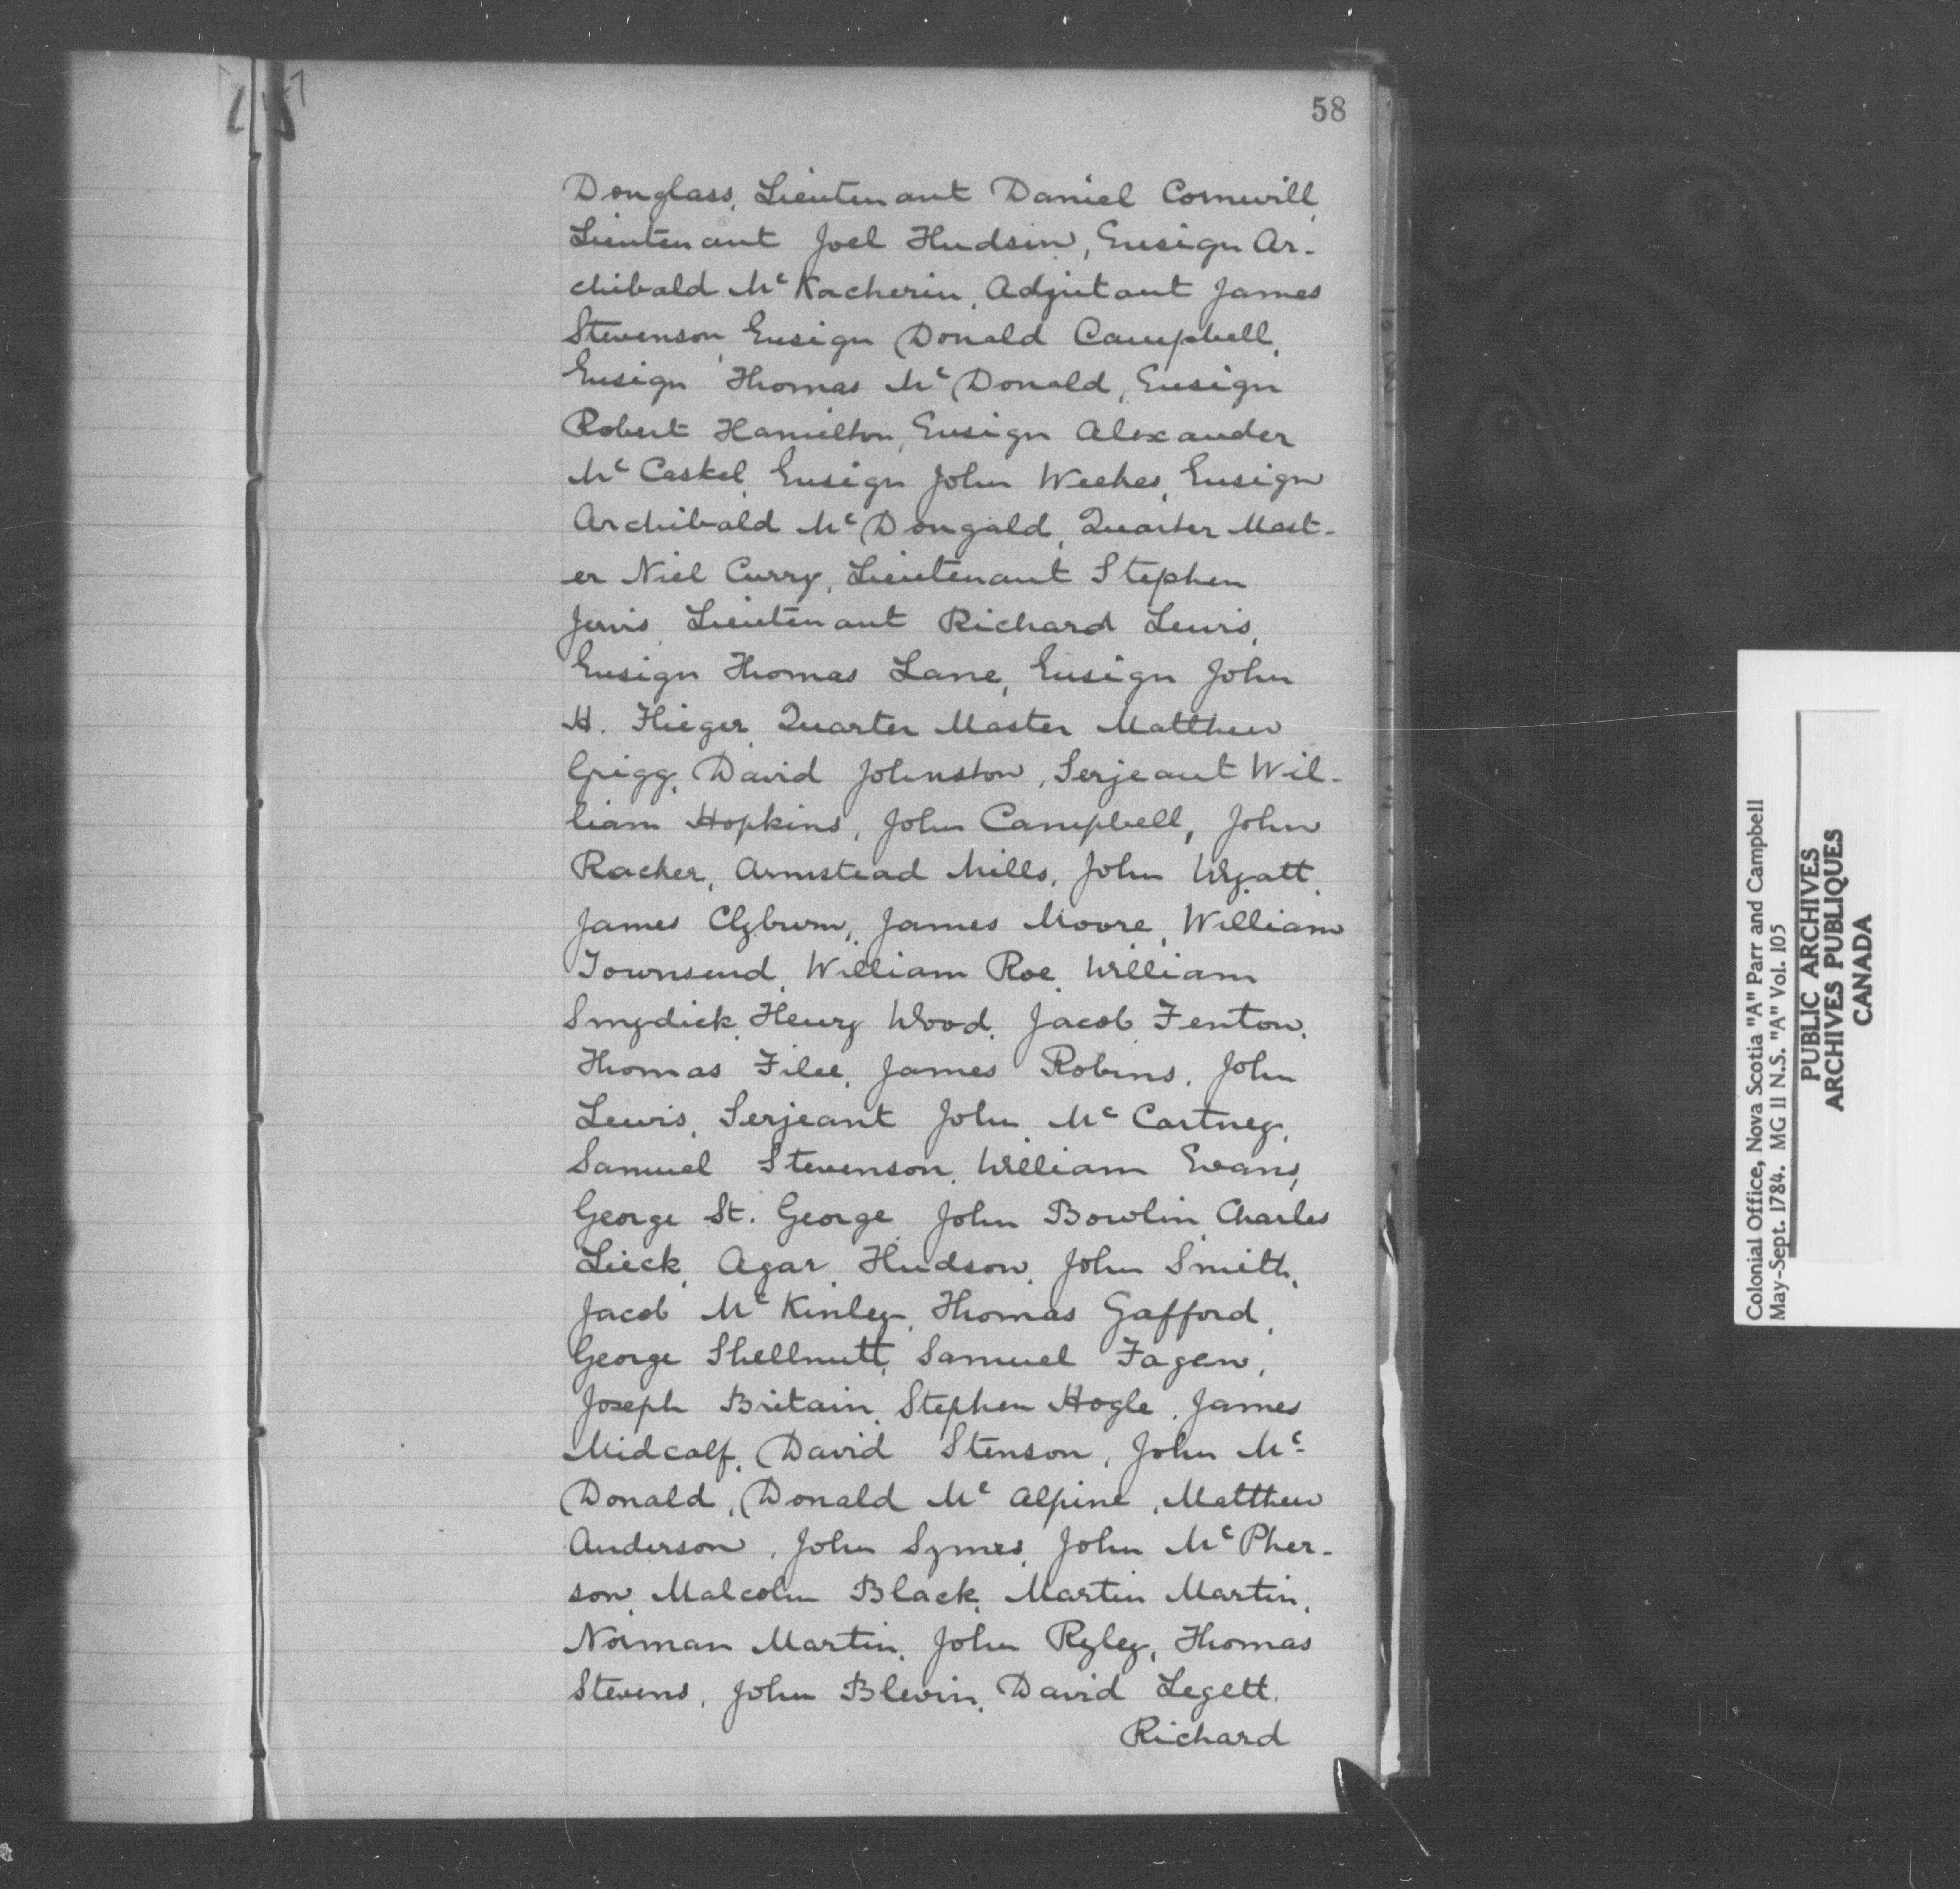 58
Douglass, Lieutenant Daniel Cornwill,
Lieutenant Joel Hudson, Ensign Ar-
chibald McKacherin, Adjutant James
Stevenson, Ensign Donald Campbell,
Ensign Thomas McDonald, Ensign
Robert Hamilton, Ensign Alexander
McCaskel, Ensign John Weekes, Ensign
Archibald McDougald, Quarter Mast-
er Niel Curry, Lieutenant Stephen
Jervis, Lieutenant Richard Lewis,
Ensign Thomas Lane, Ensign John
H. Flieger, Quarter Master Matthew
Grigg, David Johnston, Serjeant Wil-
liam Hopkins, John Campbell, John
Racker, Armstead Mills, John Wyatt,
James Clyburn, James Moore, William
Townsend, William Roe, William
Smydick, Henry Wood, Jacob Fenton,
Thomas Filee, James Robins, John
Lewis, Serjeant John McCartney,
Samuel Stevenson, William Evans,
George St. George, John Bowlin, Charles
Lieck, Agar Hudson, John Smith,
Jacob McKinley, Thomas Gafford,
George Shellnutt, Samuel Fagen,
Joseph Britain, Stephen Hogle, James
Midcalf, David Stenson, John Mc-
Donald, Donald McAlpine, Matthew
Anderson, John Symes, John McPher-
son, Malcolm Black, Martin Martin,
Norman Martin, John Ryley, Thomas
Stevens, John Blevin, David Legett,
Richard
Colonial Office, Nova Scotia "A" Parr and Campbell
May-Sept. 1784. MG 11 N.S. "A" Vol. 105
PUBLIC ARCHIVES
ARCHIVES PUBLIQUES
CANADA